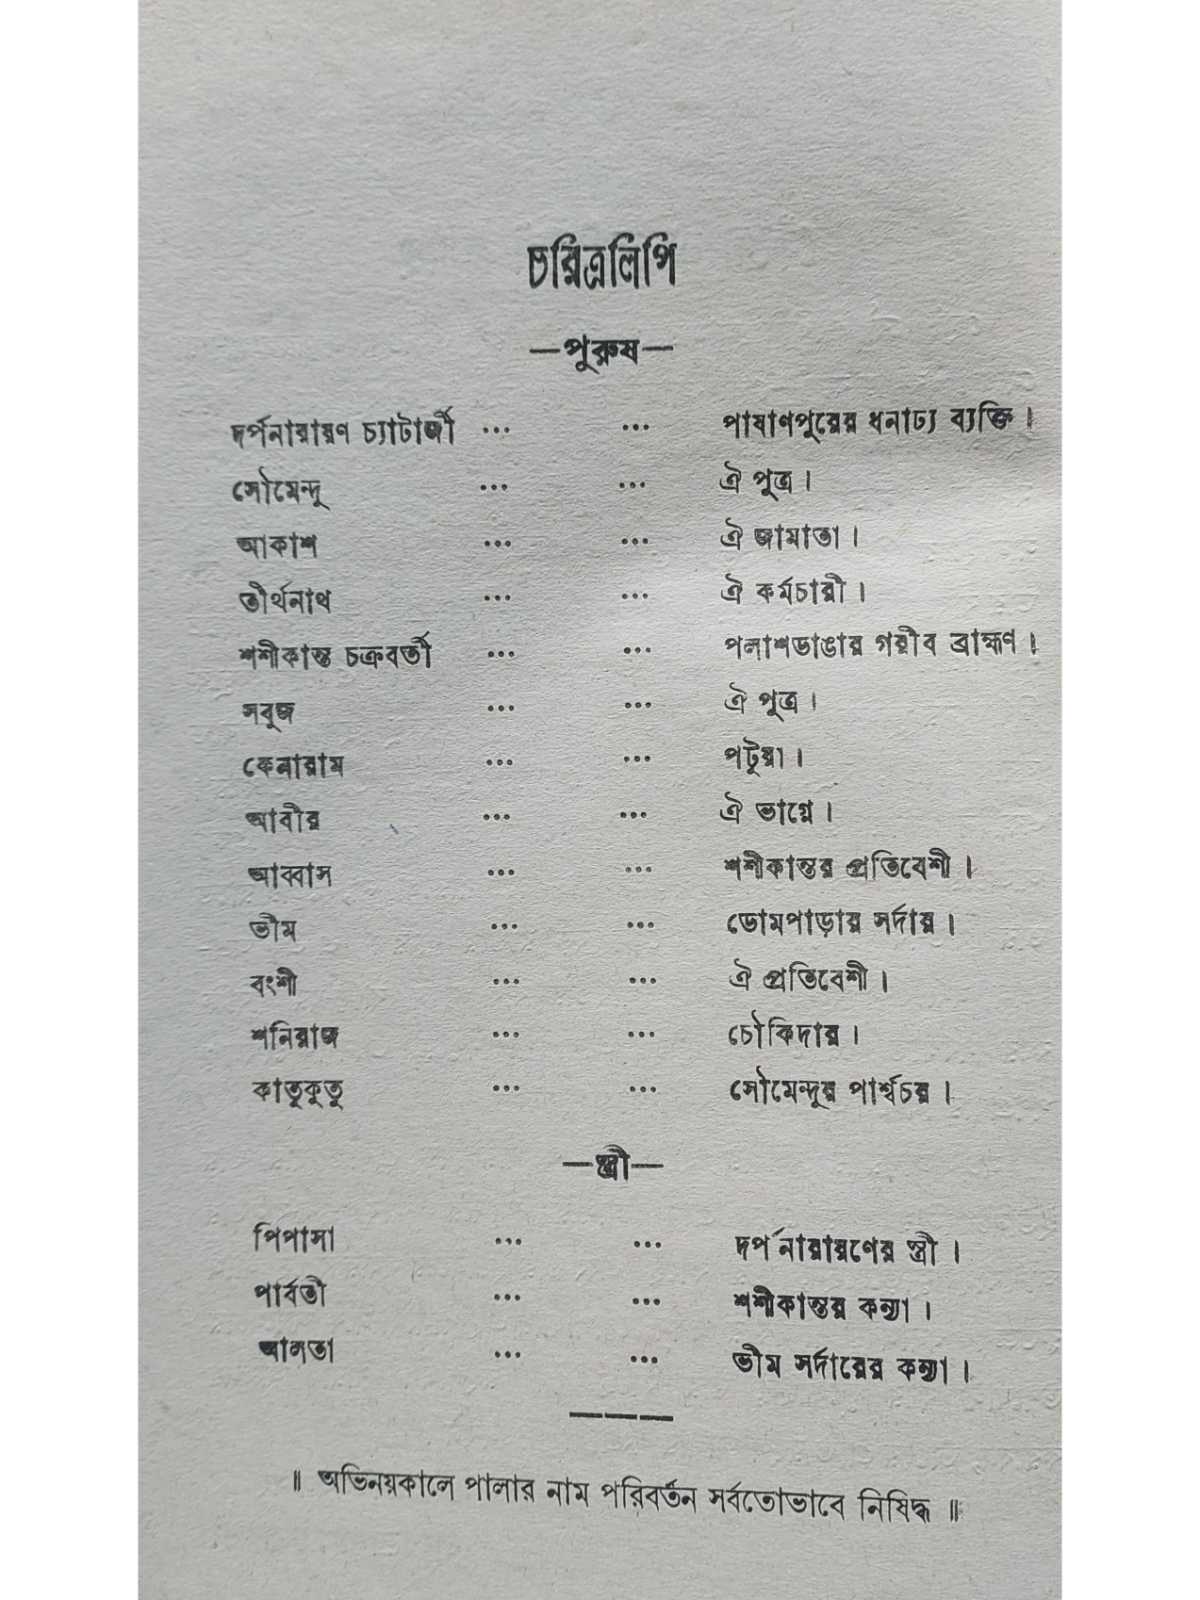 চরিত্রলিপি
—পুরুষ—
দর্পনারায়ণ চ্যাটার্জী ... ... পাষাণপুরের ধনাঢ্য ব্যক্তি।
সৌমেন্দু ... ... ঐ পুত্র।
আকাশ ... ... ঐ জামাতা।
তীর্থনাথ ... ... ঐ কর্মচারী।
শশীকান্ত চক্রবর্তী ... ... পলাশডাঙার গরীব ব্রাহ্মণ।
সবুজ ... ... ঐ পুত্র।
কেনারাম ... ... পটুয়া।
আবীর ... ... ঐ ভাগ্নে।
আব্বাস ... ... শশীকান্তর প্রতিবেশী।
ভীম ... ... ডোমপাড়ার সর্দার।
বংশী ... ... ঐ প্রতিবেশী।
শনিরাজ ... ... চৌকিদার।
কাতুকুতু ... ... সৌমেন্দুর পার্শ্বচর।
—স্ত্রী—
পিপাসা ... ... দর্পনারায়ণের স্ত্রী।
পার্বতী ... ... শশীকান্তর কন্যা।
আলতা ... ... ভীম সর্দারের কন্যা।
॥ অভিনয়কালে পালার নাম পরিবর্তন সর্বতোভাবে নিষিদ্ধ ॥